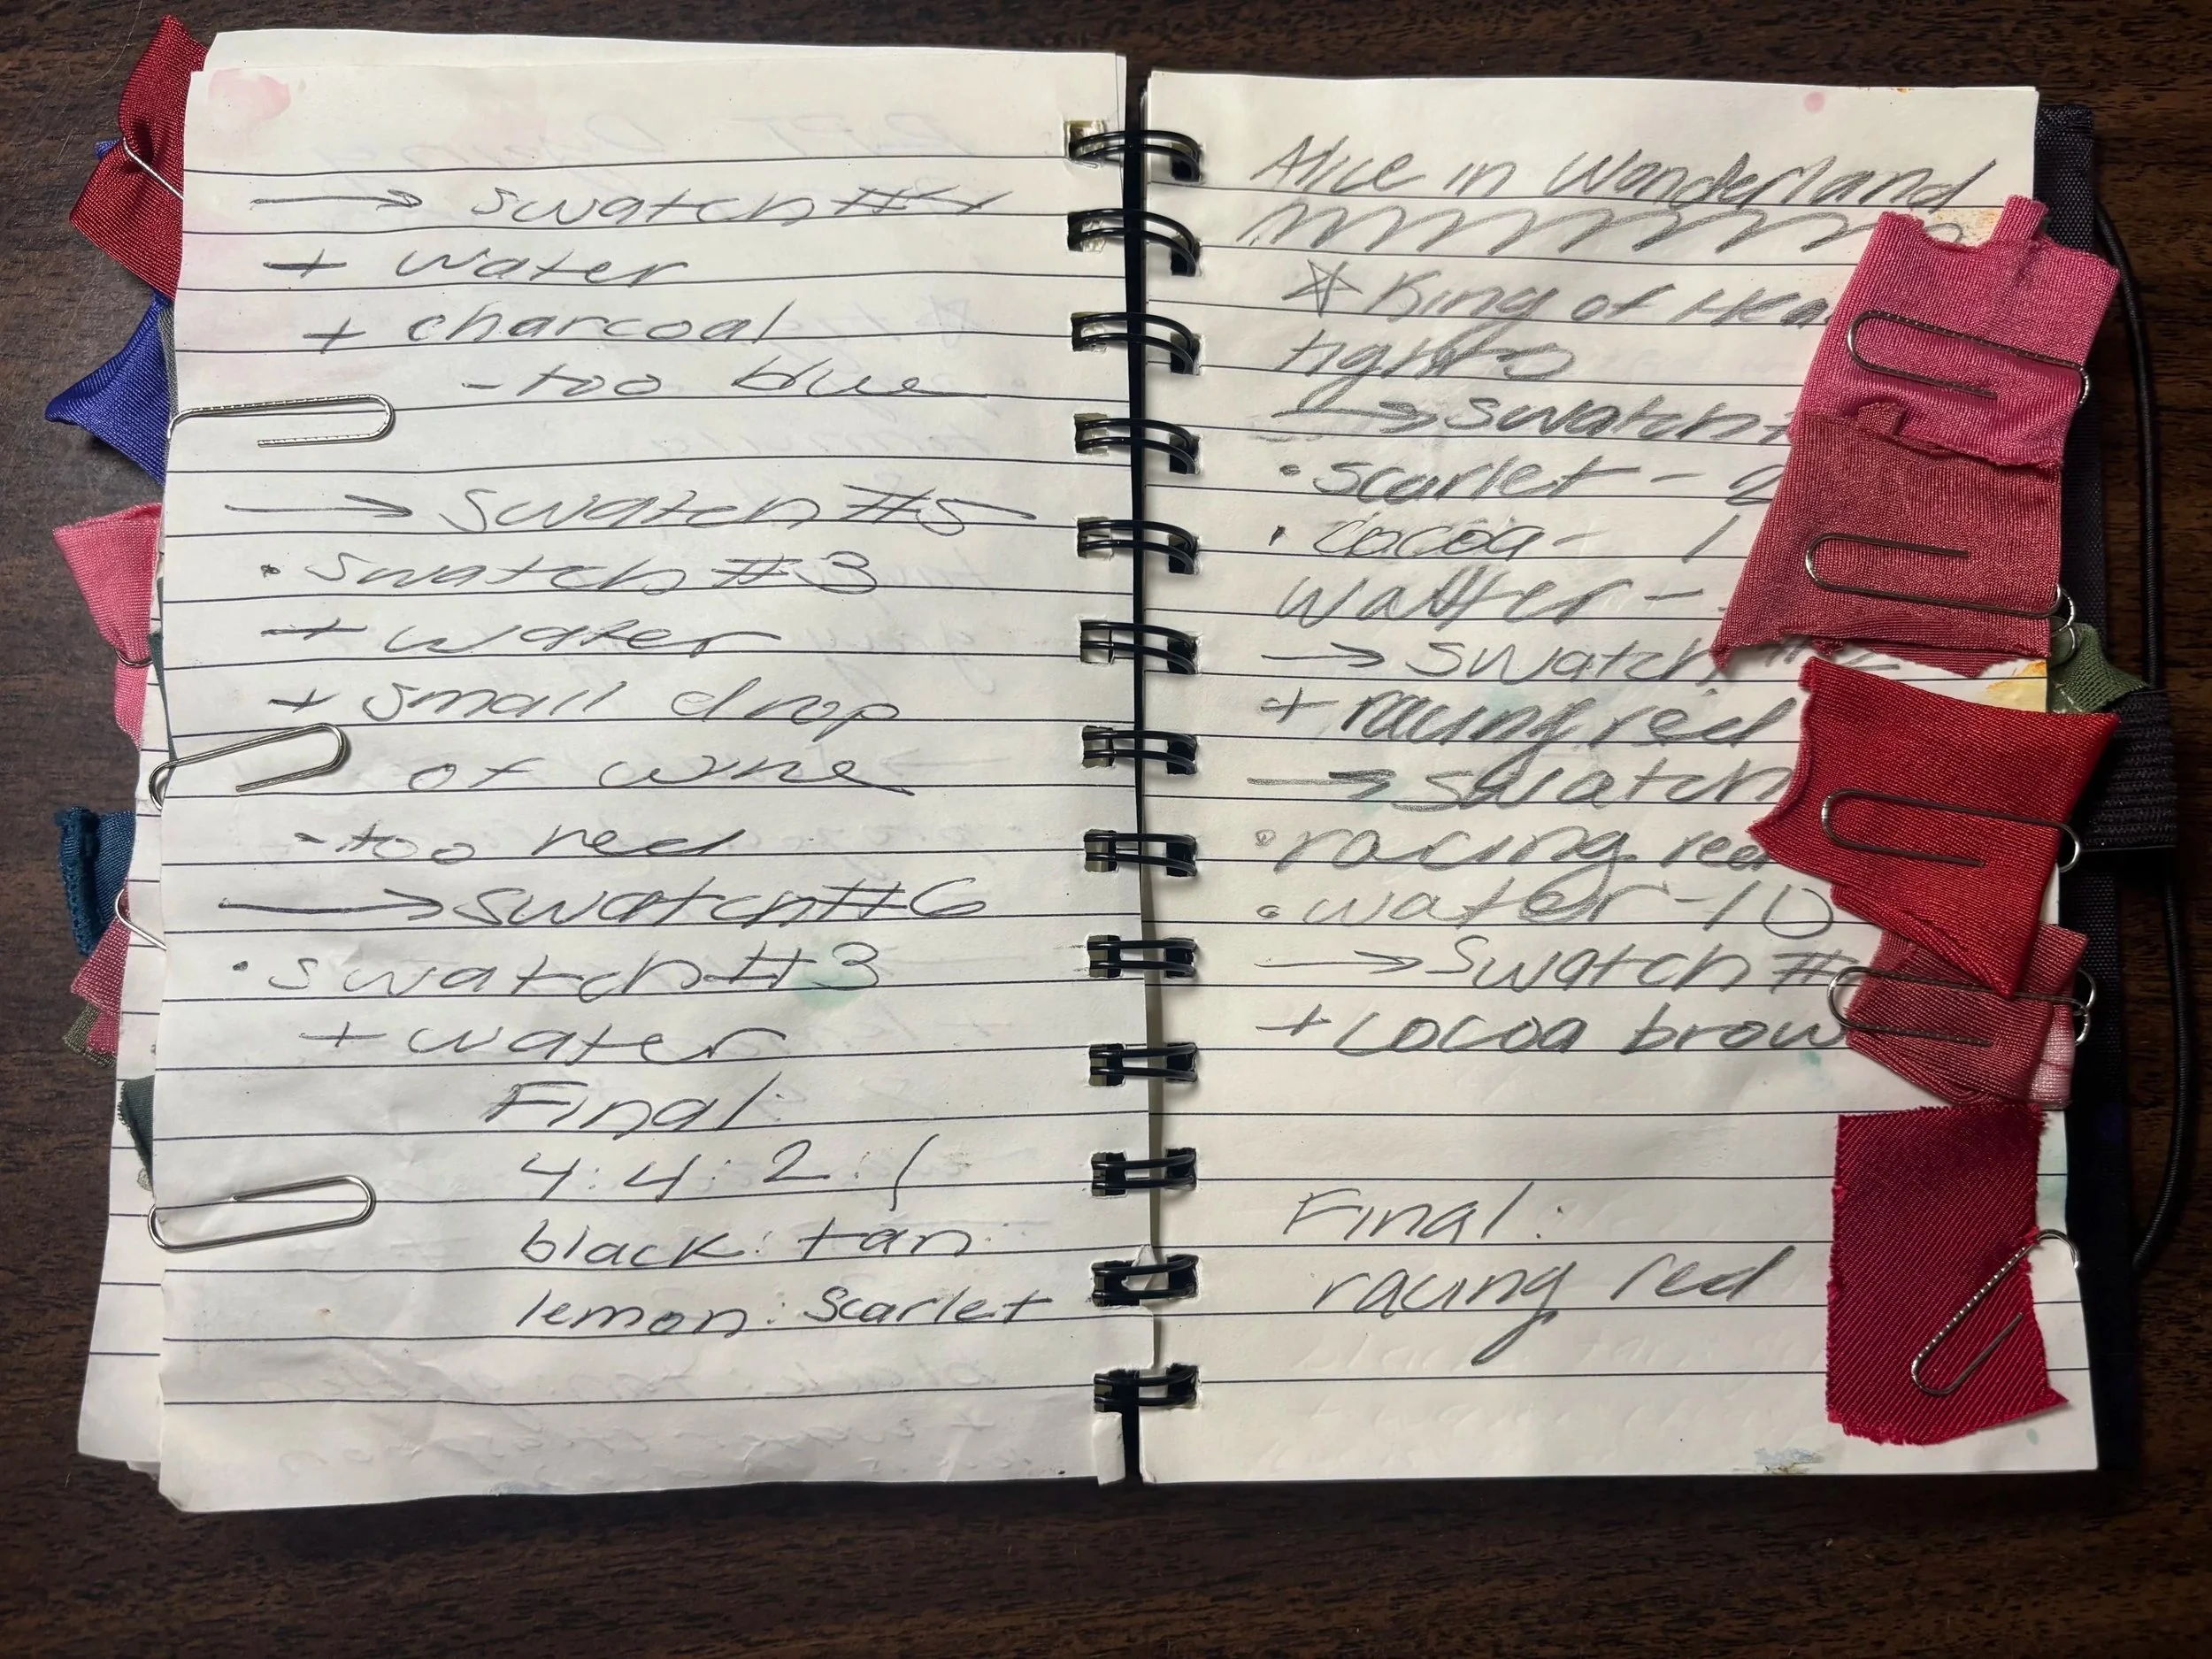 → swatch #4
+ water
+ charcoal
- too blue
→ swatch #5
• swatch #3
+ water
+ small drop
of wine
- too red
→ swatch #6
• swatch #3
+ water
Final:
4:4:2:1
black: tan:
lemon: scarlet
Alice in Wonderland
☆ King of Hea
tights
→ swatch
• scarlet -
• cocoa - 1
water -
→ swatch
+ racing red
→ swatch
• racing red
• water - 10
→ swatch #
+ cocoa brow
Final:
racing red